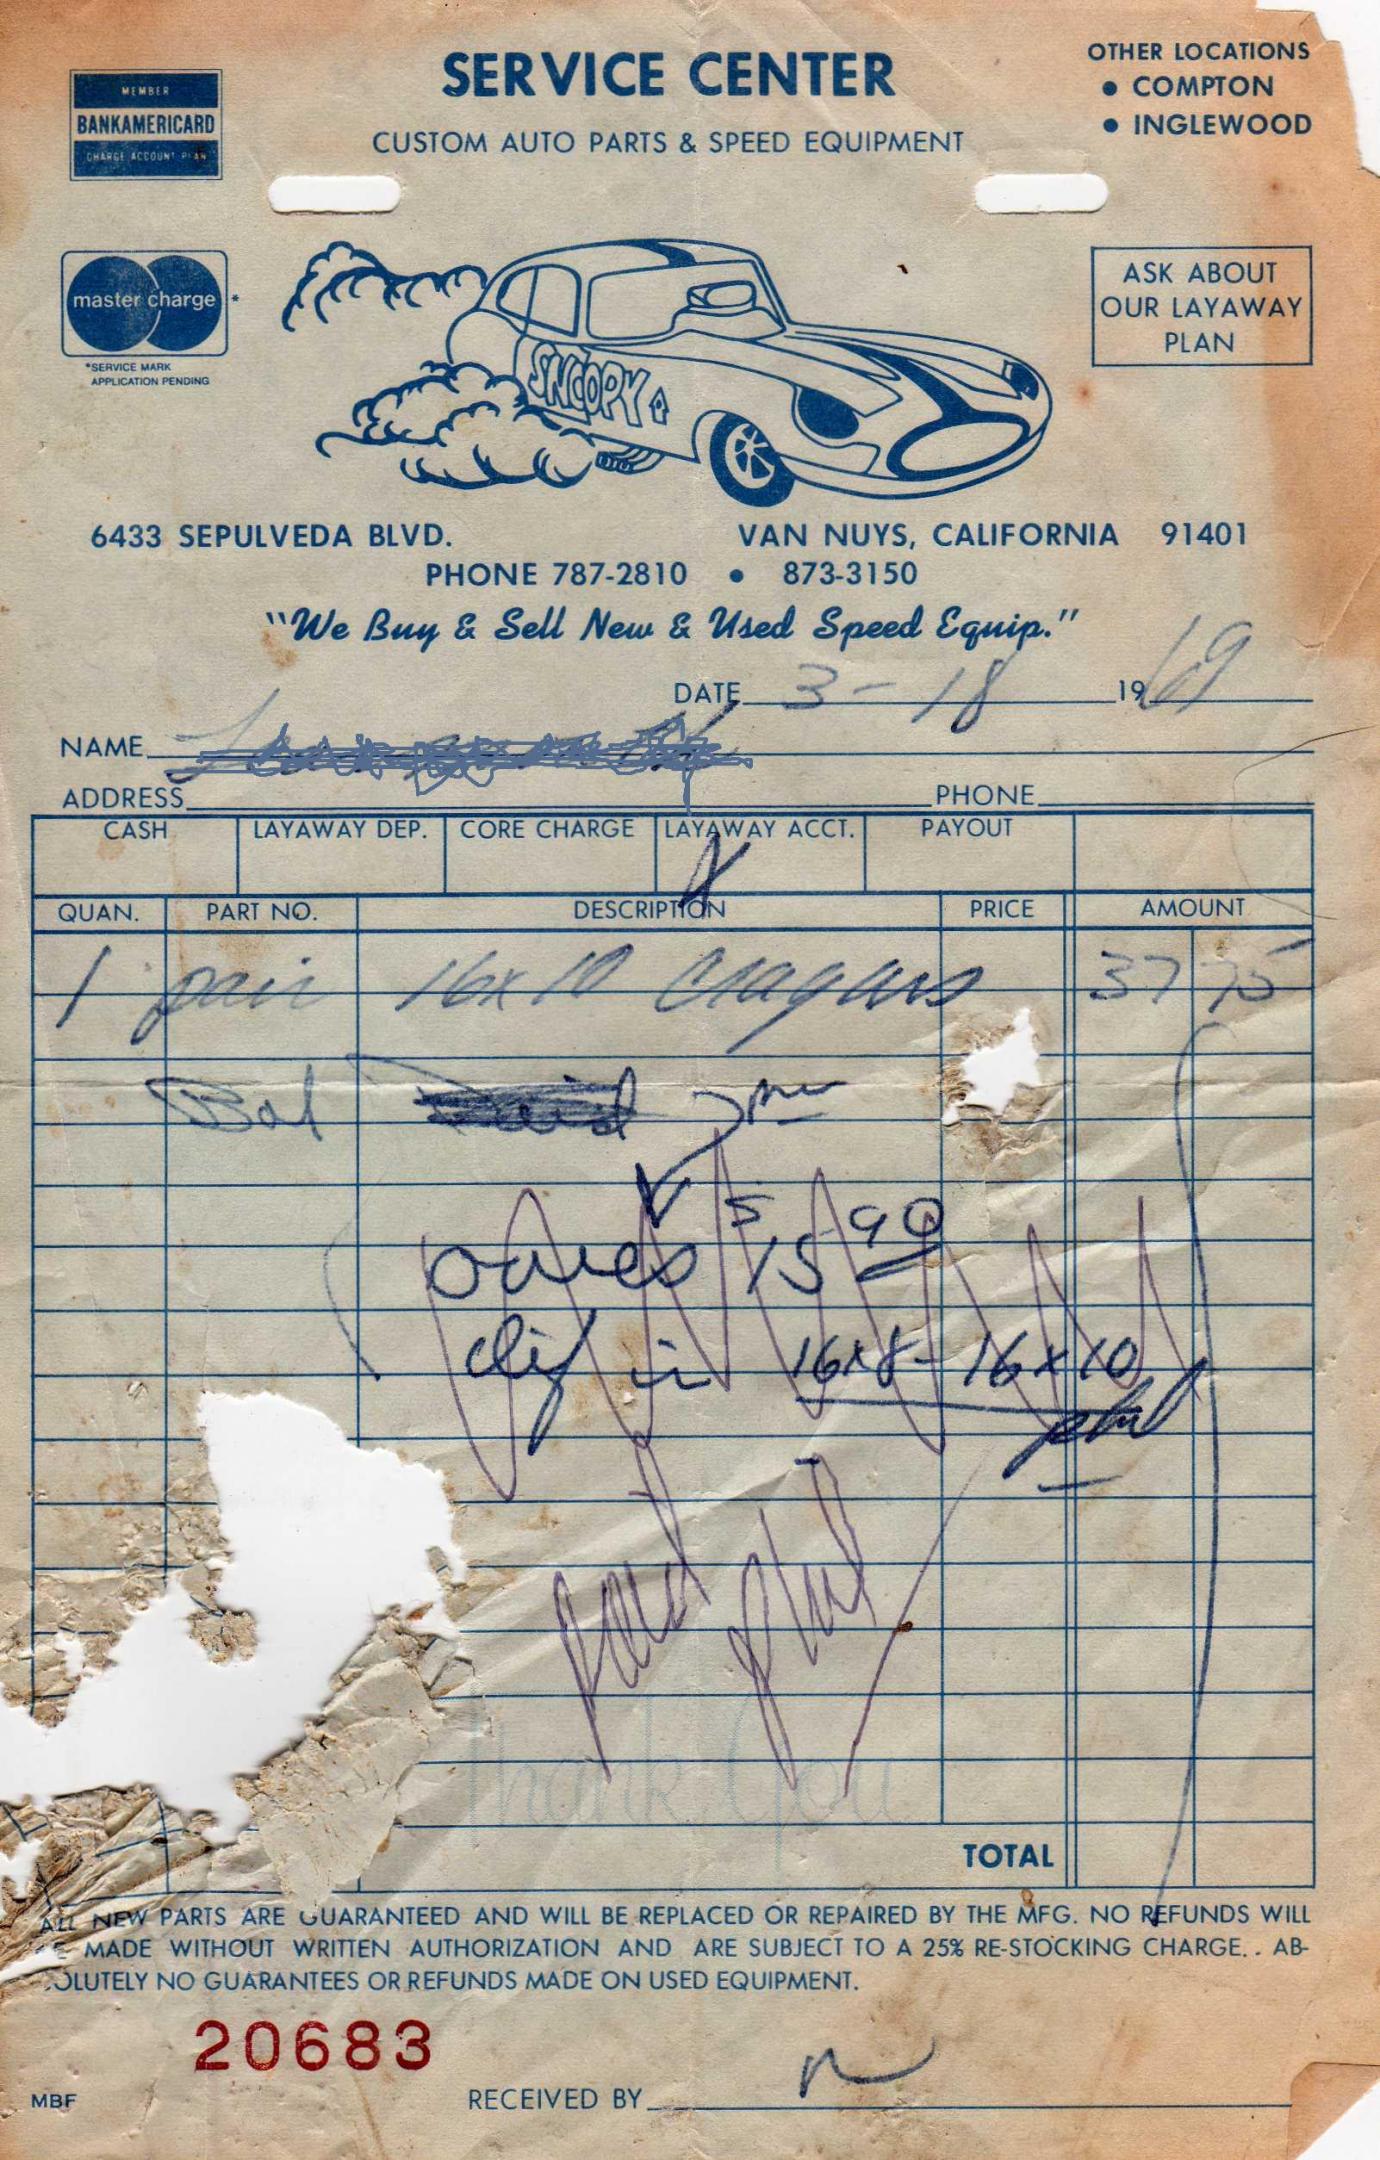 MEMBER
BANKAMERICARD
CHARGE ACCOUNT PLAN
SERVICE CENTER
CUSTOM AUTO PARTS & SPEED EQUIPMENT
OTHER LOCATIONS
• COMPTON
• INGLEWOOD
master charge *
*SERVICE MARK
APPLICATION PENDING
SNOOPY
ASK ABOUT
OUR LAYAWAY
PLAN
6433 SEPULVEDA BLVD. VAN NUYS, CALIFORNIA 91401
PHONE 787-2810 • 873-3150
"We Buy & Sell New & Used Speed Equip."
DATE 3-18 1969
NAME
ADDRESS PHONE
CASH LAYAWAY DEP. CORE CHARGE LAYAWAY ACCT. PAYOUT
QUAN. PART NO. DESCRIPTION PRICE AMOUNT
1 pair 16x10 Cragars 37 75
Bal Paid
owes 15 90
dif in 16x8-16x10
paid
Thank You
TOTAL
ALL NEW PARTS ARE GUARANTEED AND WILL BE REPLACED OR REPAIRED BY THE MFG. NO REFUNDS WILL
BE MADE WITHOUT WRITTEN AUTHORIZATION AND ARE SUBJECT TO A 25% RE-STOCKING CHARGE. . AB-
SOLUTELY NO GUARANTEES OR REFUNDS MADE ON USED EQUIPMENT.
20683
MBF RECEIVED BY